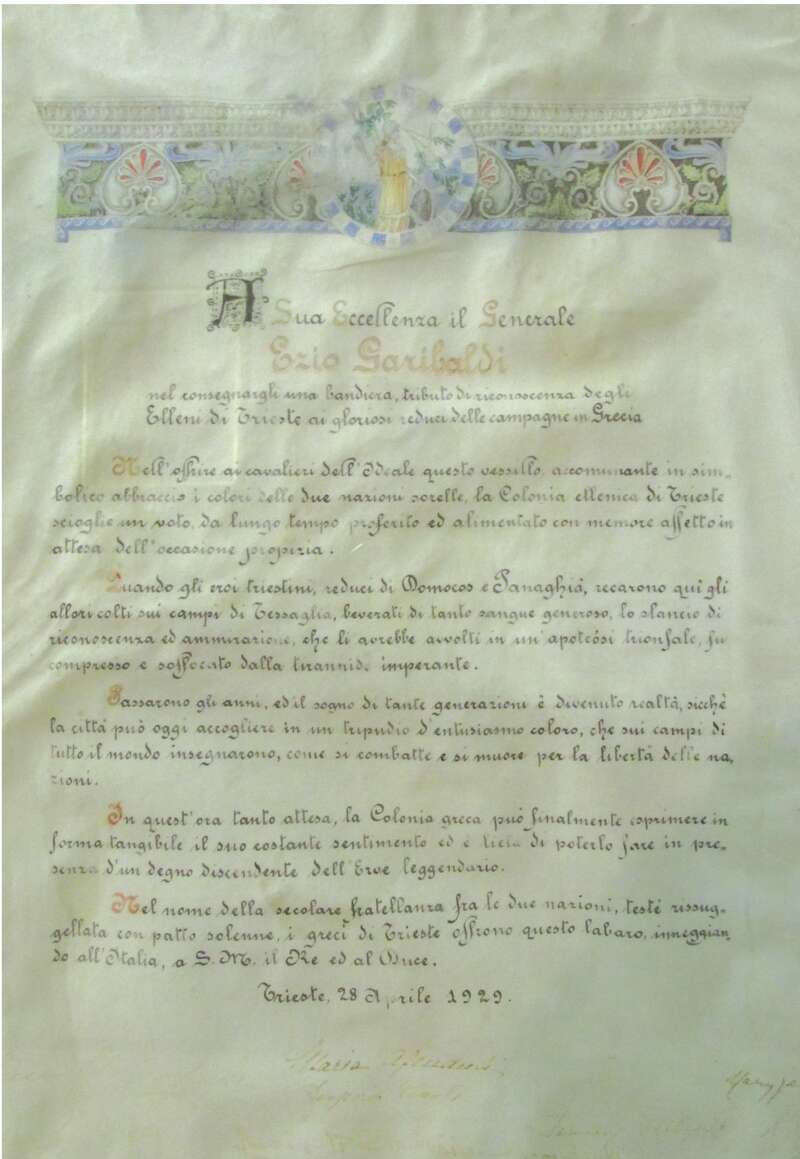 A Sua Eccellenza il Generale
Ezio Garibaldi
nel consegnargli una bandiera, tributo di riconoscenza degli
Elleni di Trieste ai gloriosi reduci delle campagne in Grecia
Nell'offrire ai cavalieri dell'Ideale questo vessillo, accomunante in sim-
bolico abbraccio i colori delle due nazioni sorelle, la Colonia ellenica di Trieste
scioglie un voto, da lungo tempo proferito ed alimentato con memore affetto in
attesa dell'occasione propizia.
Quando gli eroi triestini, reduci di Domocos e Panaghià, recarono quì gli
allori colti sui campi di Tessaglia, beverati di tanto sangue generoso, lo slancio di
riconoscenza ed ammirazione, che li avrebbe avvolti in un'apoteòsi trionfale, fu
compresso e soffocato dalla tirannide imperante.
Passarono gli anni, ed il sogno di tante generazioni è divenuto realtà, sicchè
la città può oggi accogliere in un tripudio d'entusiasmo coloro, che sui campi di
tutto il mondo insegnarono, come si combatte e si muore per la libertà delle na-
zioni.
In quest'ora tanto attesa, la Colonia greca può finalmente esprimere in
forma tangibile il suo costante sentimento ed è lieta di poterlo fare in pre-
senza d'un degno discendente dell'Eroe leggendario.
Nel nome della secolare fratellanza fra le due nazioni, testé risug-
gellata con patto solenne, i greci di Trieste offrono questo labaro, inneggian
do all'Italia, a S. M. il Re ed al Duce.
Trieste, 28 Aprile 1929.
Maria